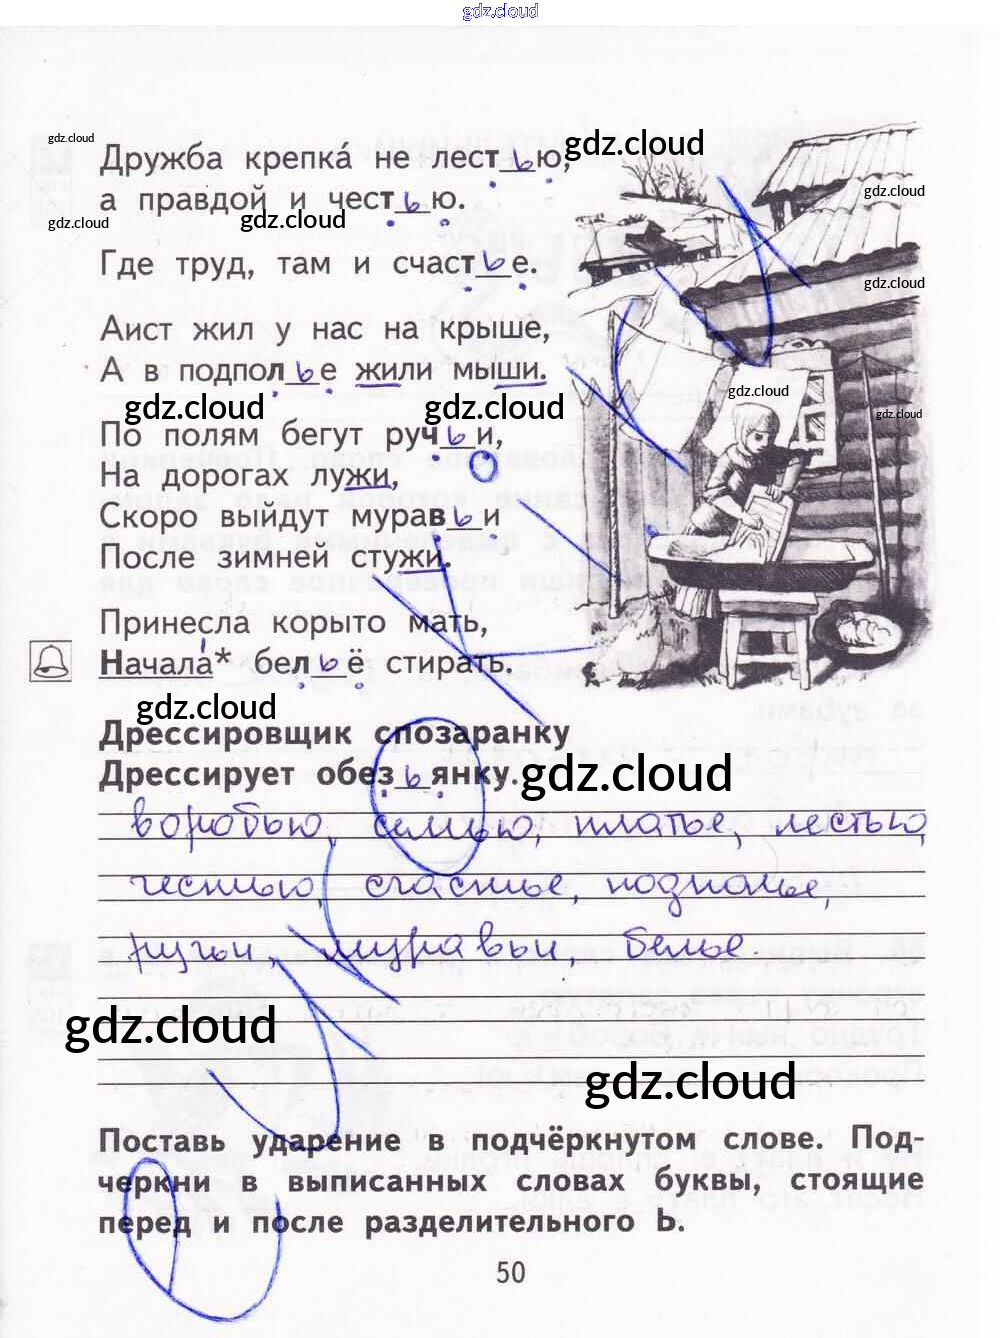 gdz.cloud
gdz.cloud
gdz.cloud
Дружба крепка́ не лестью,
а правдой и честью.
gdz.cloud
gdz.cloud
gdz.cloud
Где труд, там и счастье.
gdz.cloud
Аист жил у нас на крыше,
А в подполье жили мыши.
gdz.cloud
gdz.cloud
gdz.cloud
gdz.cloud
По полям бегут ручьи,
На дорогах лужи,
Скоро выйдут муравьи
После зимней стужи.
Принесла корыто мать,
Начала́* бельё стирать.
gdz.cloud
Дрессировщик спозаранку
Дрессирует обезьянку.
gdz.cloud
воробью, семью, платье, лестью,
честью, счастье, подполье,
ручьи, муравьи, белье
gdz.cloud
gdz.cloud
Поставь ударение в подчёркнутом слове. Под-
черкни в выписанных словах буквы, стоящие
перед и после разделительного Ь.
50